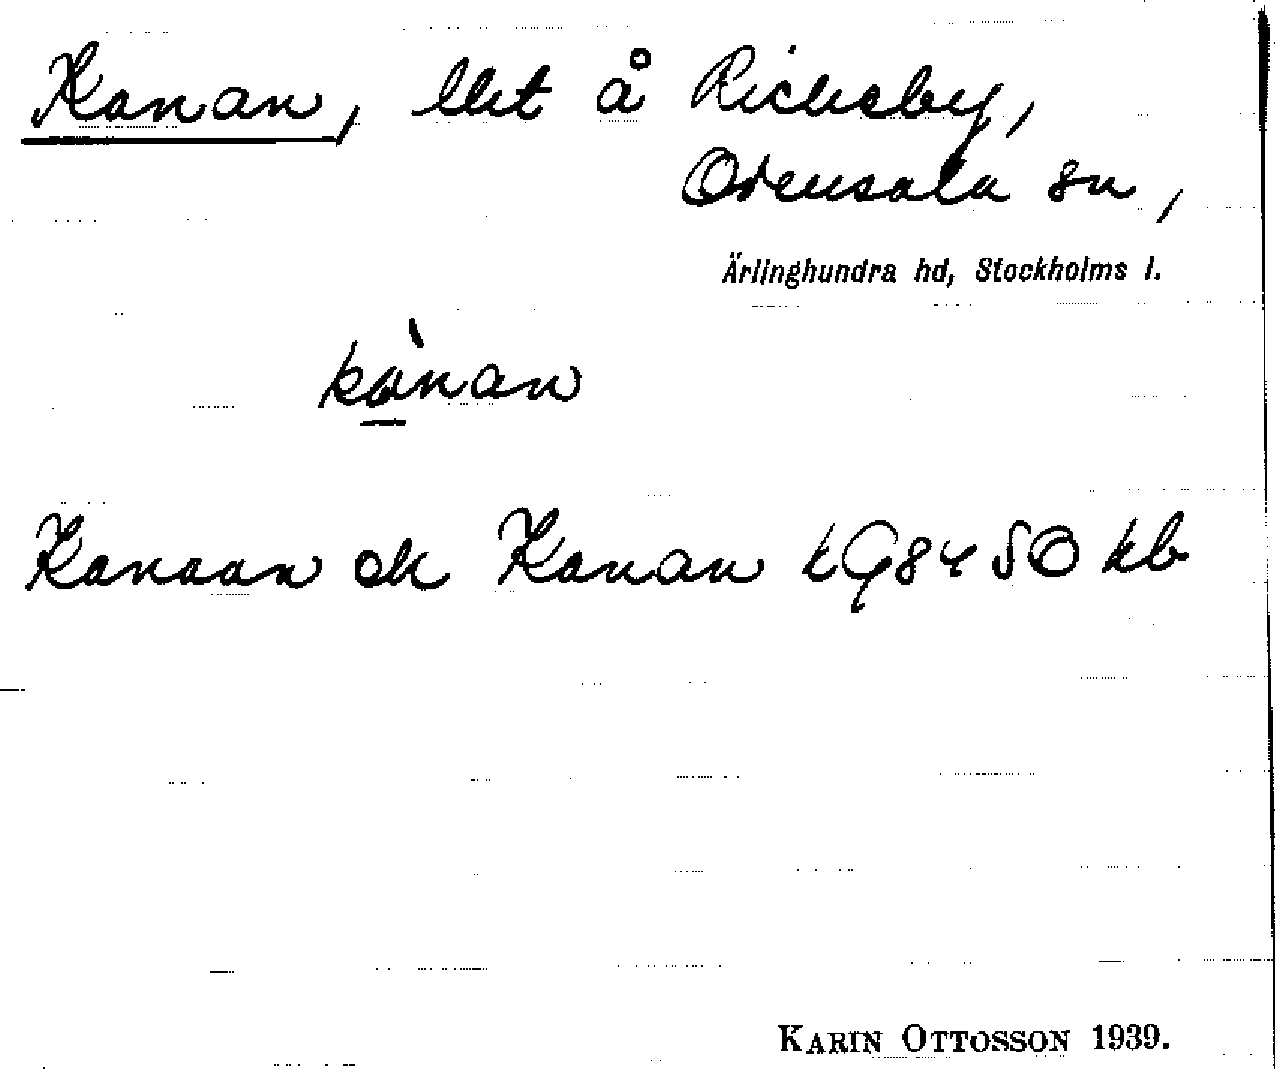 Kanan, llht å Rickeby,
Odensala sn,
Ärlinghundra hd, Stockholms l.
kànan
Kanaan ok Kanan t 98450 kb
KARIN OTTOSSON 1939.